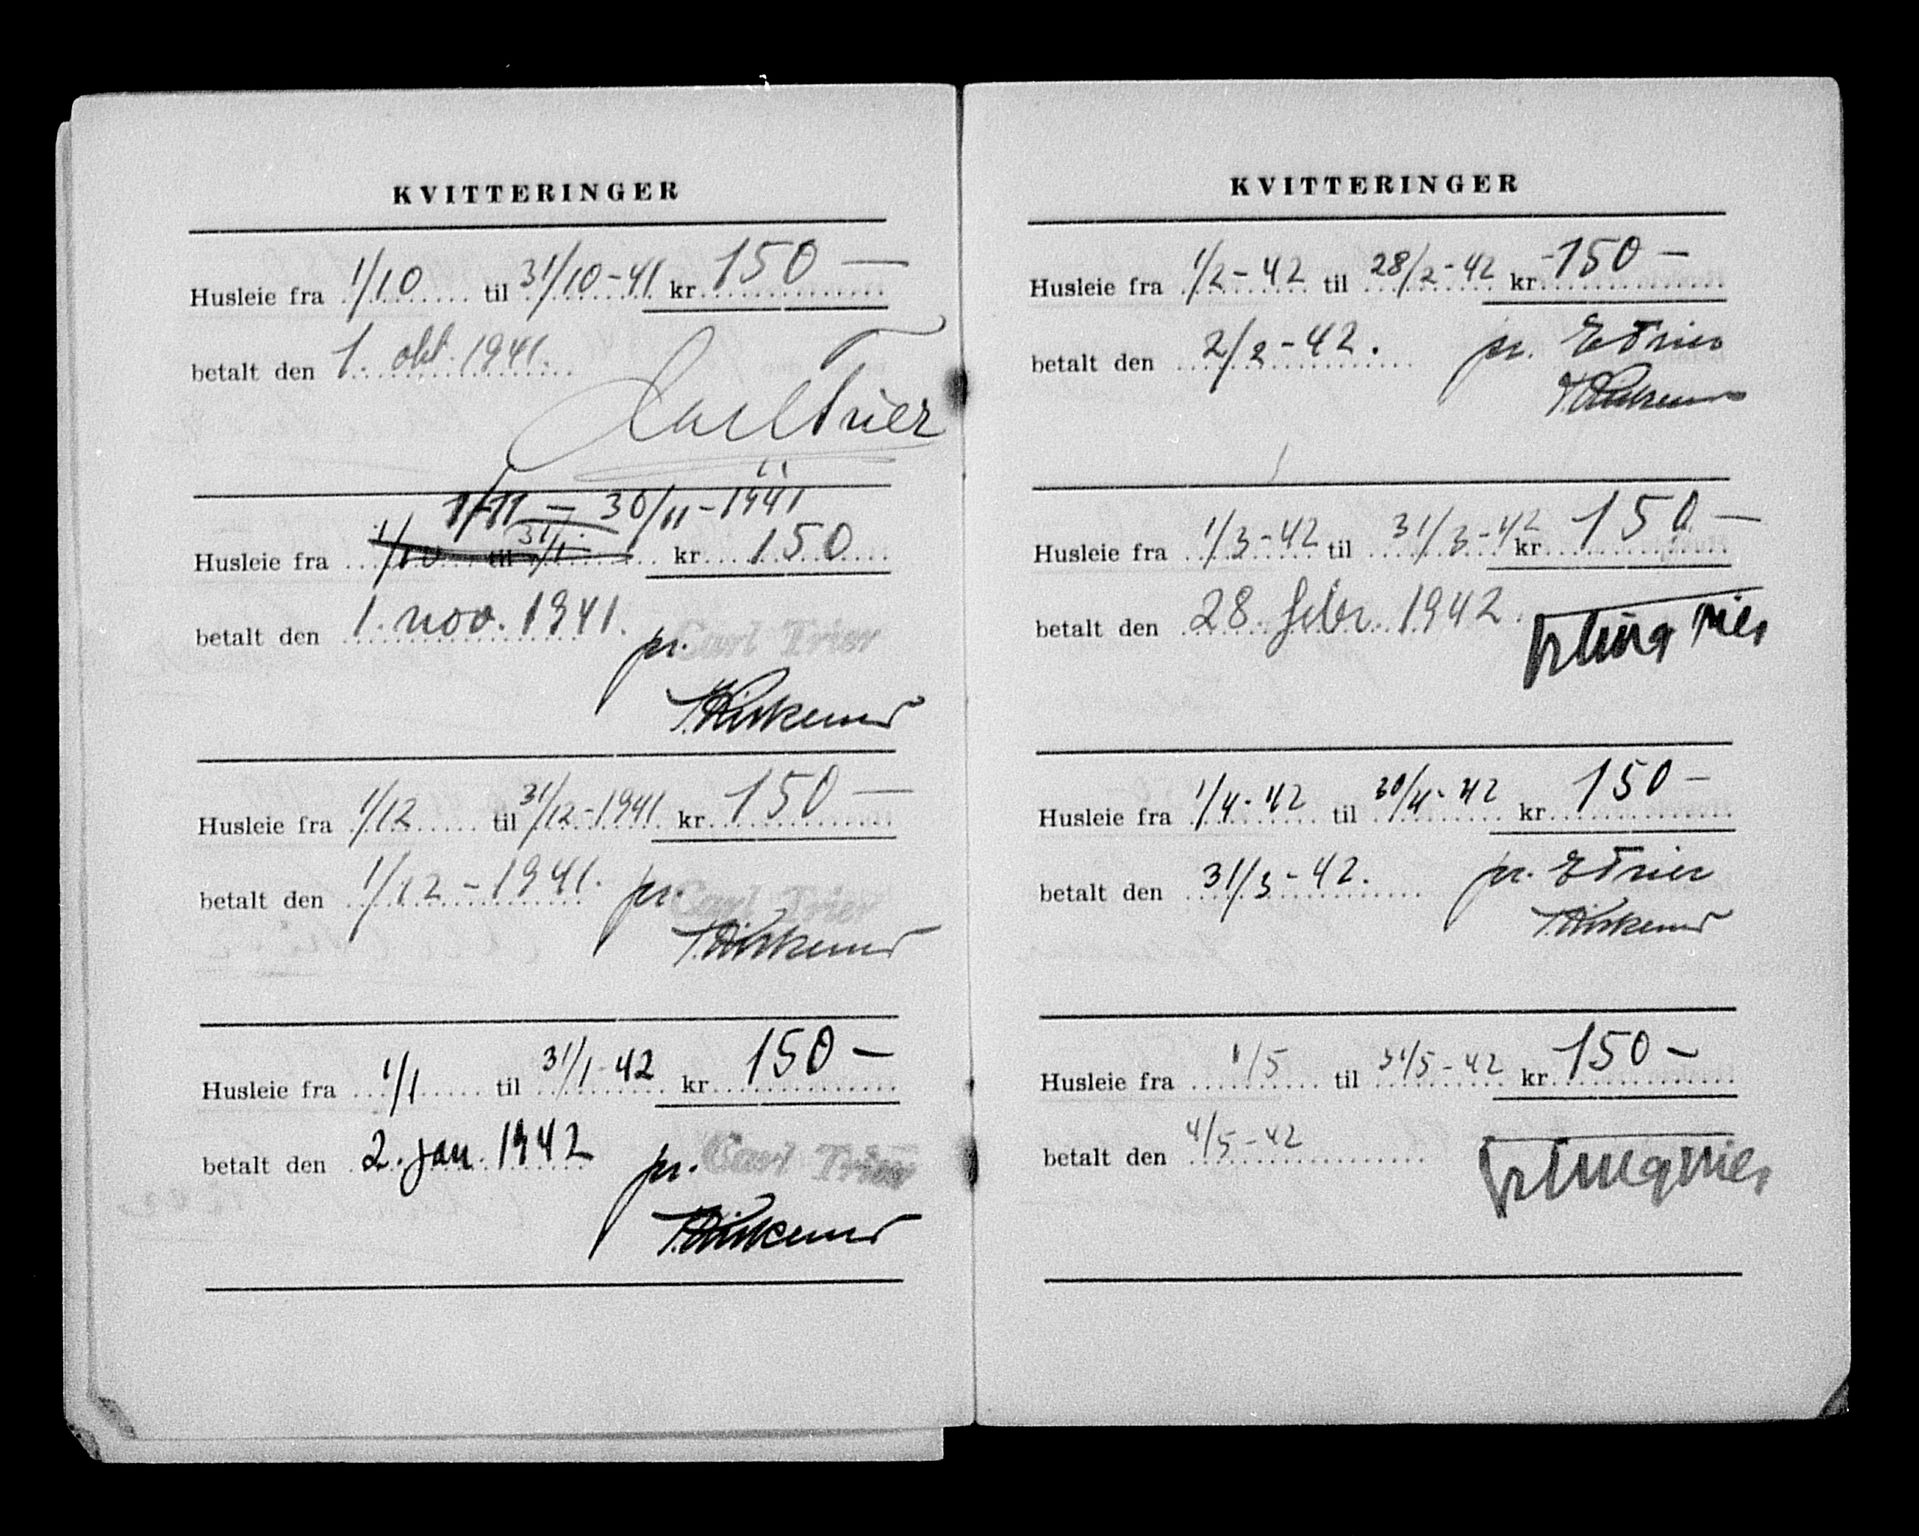 KVITTERINGER
Husleie fra 1/10 til 31/10-41 kr 150 —
betalt den 1. okt. 1941.
Carl Trier
1/11 — 30/11-1941
Husleie fra 1/10 til 31/1 kr 150
betalt den 1. nov. 1941. pr. Carl Trier
Husleie fra 1/12 til 31/12-1941 kr 150 —
betalt den 1/12-1941. pr. Carl Trier
Husleie fra 1/1 til 31/1-42 kr 150 —
betalt den 2. jan. 1942 pr. Carl Trier
KVITTERINGER
Husleie fra 1/2-42 til 28/2-42 kr 150 —
betalt den 2/2-42. pr. E Trier
Husleie fra 1/3-42 til 31/3-42 kr 150 —
betalt den 28. febr. 1942.
Husleie fra 1/4-42 til 30/4-42 kr 150 —
betalt den 31/3-42. pr. E Trier
Husleie fra 1/5 til 31/5-42 kr 150 —
betalt den 4/5-42